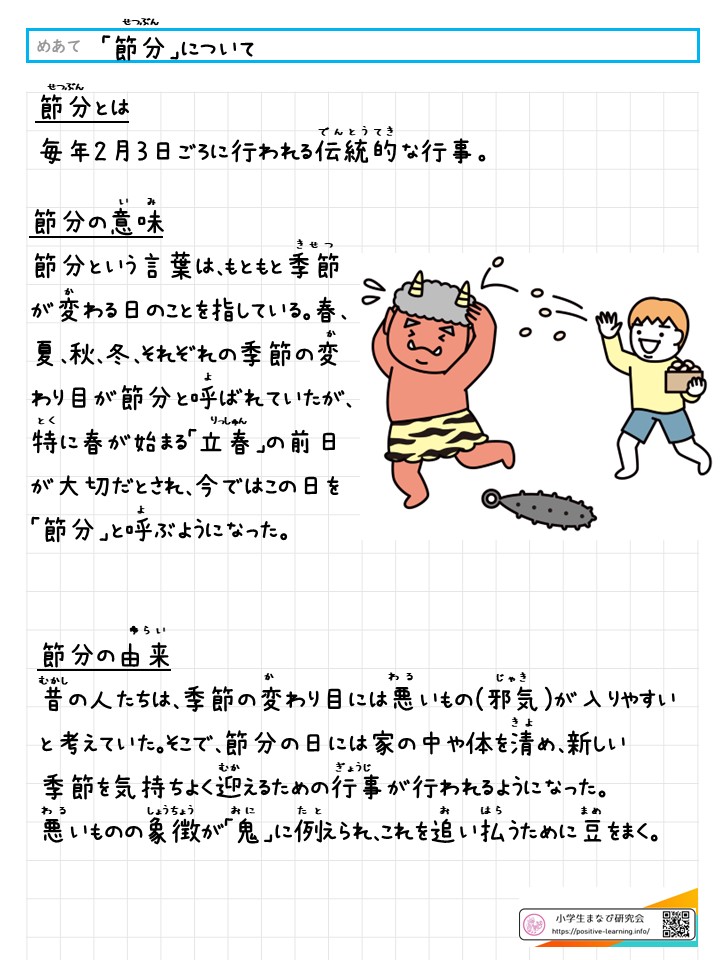 せつぶん
めあて 「節分」について
せつぶん
節分とは
でんとうてき
毎年2月3日ごろに行われる伝統的な行事。
いみ
節分の意味
きせつ
節分という言葉は、もともと季節
か
が変わる日のことを指している。春、
か
夏、秋、冬、それぞれの季節の変
よ
わり目が節分と呼ばれていたが、
とく りっしゅん
特に春が始まる「立春」の前日
が大切だとされ、今ではこの日を
よ
「節分」と呼ぶようになった。
ゆらい
節分の由来
むかし か わる じゃき
昔の人たちは、季節の変わり目には悪いもの(邪気)が入りやすい
きよ
と考えていた。そこで、節分の日には家の中や体を清め、新しい
むか ぎょうじ
季節を気持ちよく迎えるための行事が行われるようになった。
わる しょうちょう おに たと お はら まめ
悪いものの象徴が「鬼」に例えられ、これを追い払うために豆をまく。
小学生まなび研究会
https://positive-learning.info/